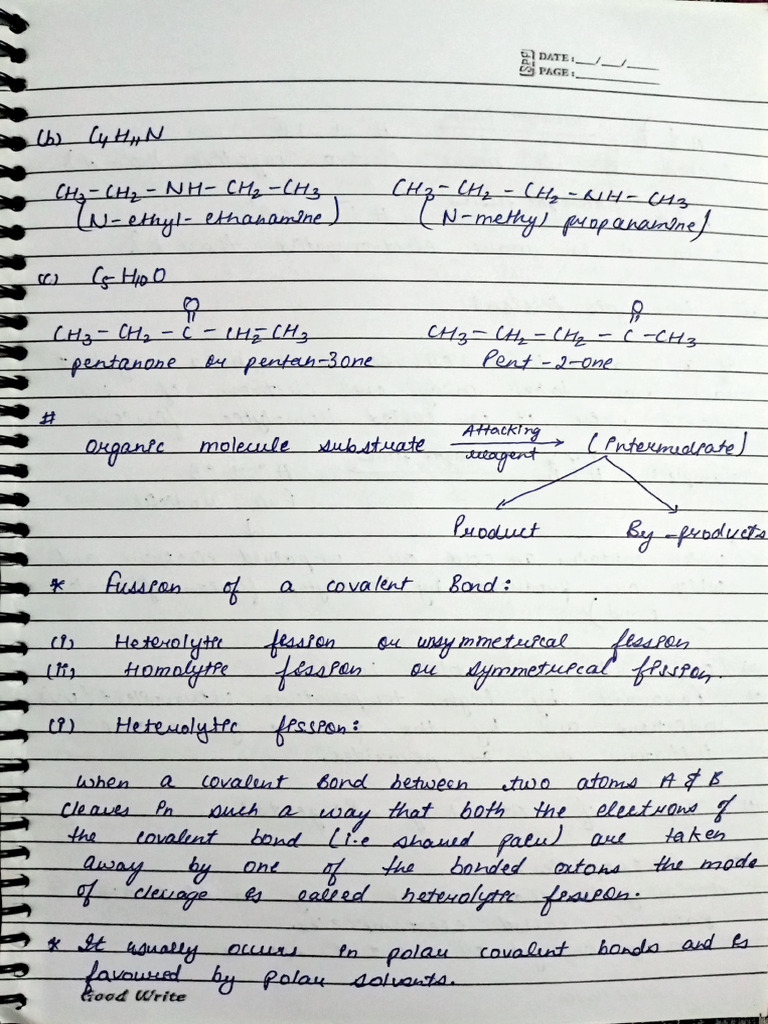 SPE DATE: __/__/____
PAGE: ________
(b) C4H11N
CH3-CH2-NH-CH2-CH3 CH3-CH2-CH2-NH-CH3
(N-ethyl-ethanamine) (N-methyl propanamine)
(c) C5H10O
O O
CH3-CH2-C-CH2-CH3 CH3-CH2-CH2-C-CH3
pentanone or pentan-3one Pent-2-one
#
Organic molecule substrate Attacking reagent → (Intermediate)
Product By-products
* Fussion of a covalent Bond:
(i) Heterolytic fission or unsymmetrical fission
(ii) Homolytic fission or symmetrical fission.
(i) Heterolytic fission:
When a covalent Bond between two atoms A & B
cleaves in such a way that both the electrons of
the covalent bond (i.e shared pair) are taken
away by one of the bonded atoms the mode
of clevage is called heterolytic fission.
* It usually occurs in polar covalent bonds and is
favoured by polar solvents.
Good Write